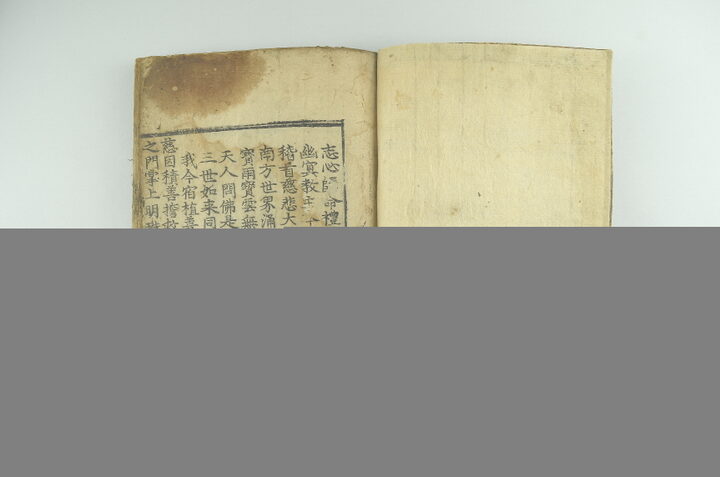 志心 命禮
幽冥教主
稽首慈悲大
南方世界涌
寶雨寶雲無
天人問佛是
三世如来同
我今宿植善
慈因積善誓救
之門掌上明